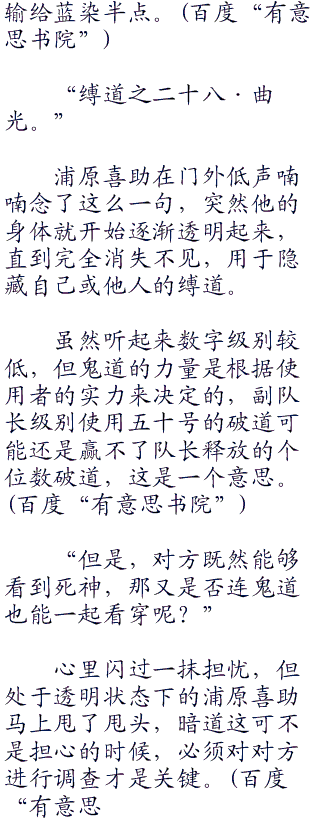 输给蓝染半点。(百度“有意
思书院”)
“缚道之二十八·曲
光。”
浦原喜助在门外低声喃
喃念了这么一句，突然他的
身体就开始逐渐透明起来，
直到完全消失不见，用于隐
藏自己或他人的缚道。
虽然听起来数字级别较
低，但鬼道的力量是根据使
用者的实力来决定的，副队
长级别使用五十号的破道可
能还是赢不了队长释放的个
位数破道，这是一个意思。
(百度“有意思书院”)
“但是，对方既然能够
看到死神，那又是否连鬼道
也能一起看穿呢？”
心里闪过一抹担忧，但
处于透明状态下的浦原喜助
马上甩了甩头，暗道这可不
是担心的时候，必须对对方
进行调查才是关键。(百度
“有意思